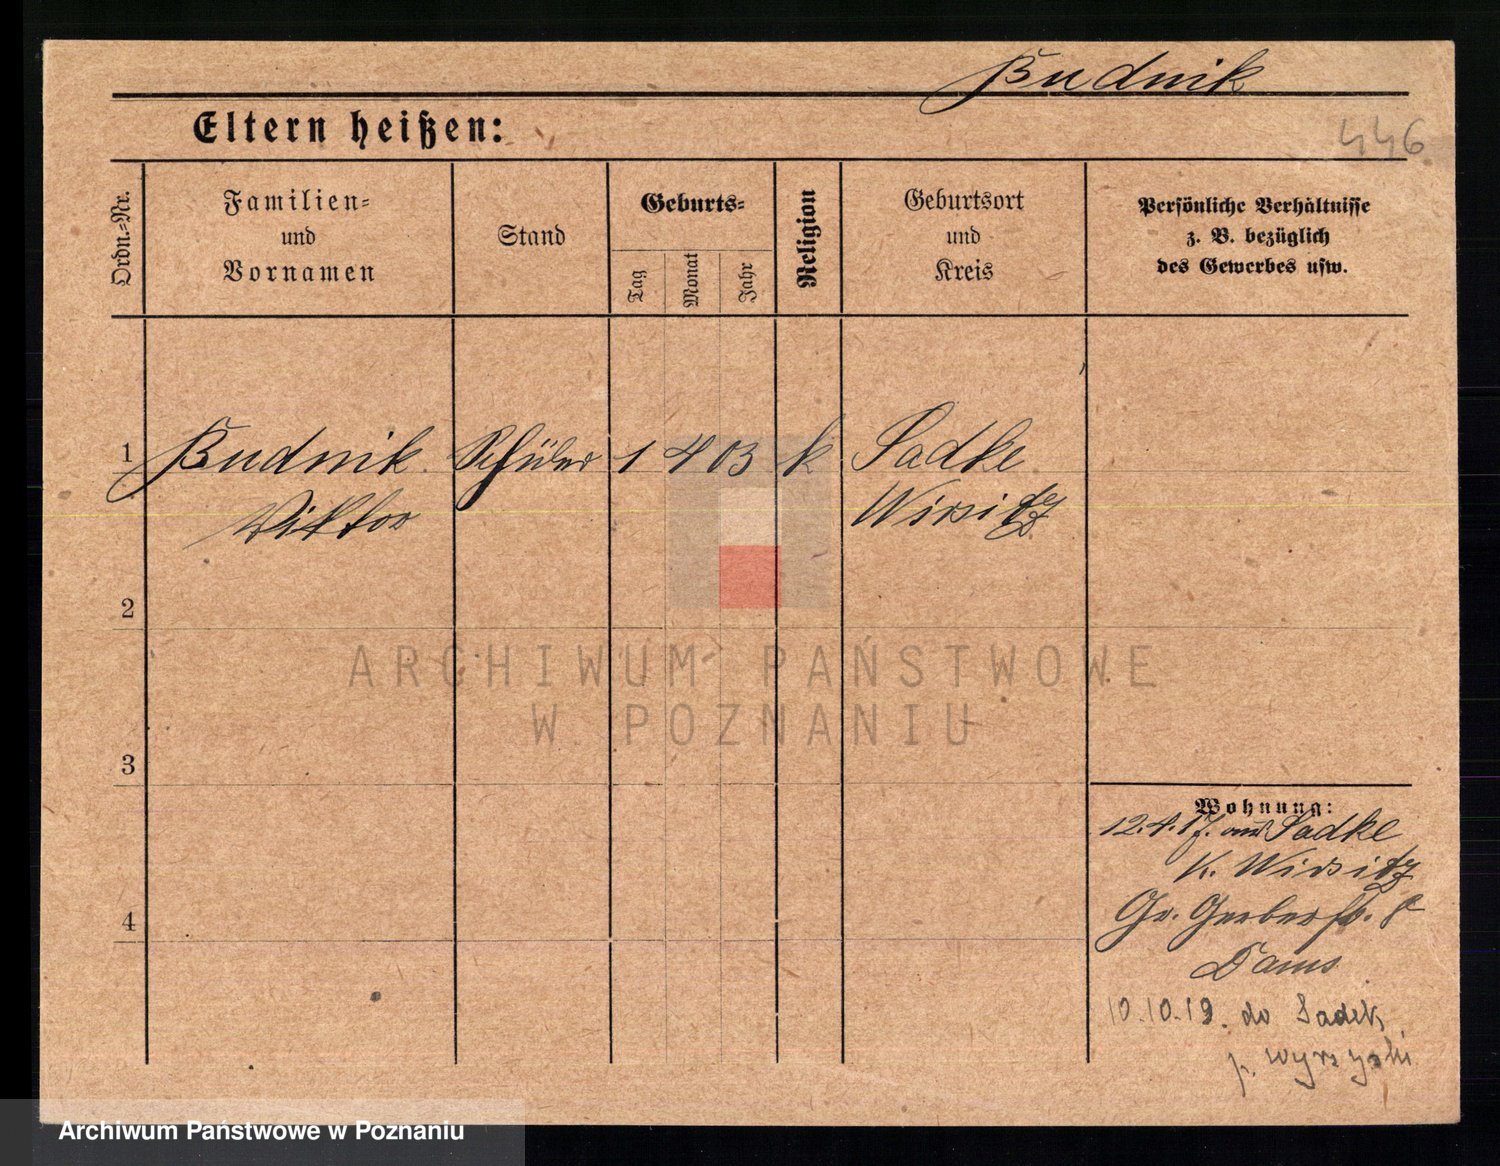 Budnik
Eltern heißen:
446
Ordn.-Nr.
Familien-
und
Vornamen
Stand
Geburts-
Tag
Monat
Jahr
Religion
Geburtsort
und
Kreis
Persönliche Verhältnisse
z. B. bezüglich
des Gewerbes usw.
1
Budnik Schüler 1 4 03 k Sadke
Viktor Wirsitz
2
ARCHIWUM PAŃSTWOWE
W POZNANIU
3
Wohnung:
12.4.17. aus Sadke
K. Wirsitz
4
Gr. Gerberstr. 8
10.10.19. do Sadek
p. wyrzyski
Archiwum Państwowe w Poznaniu